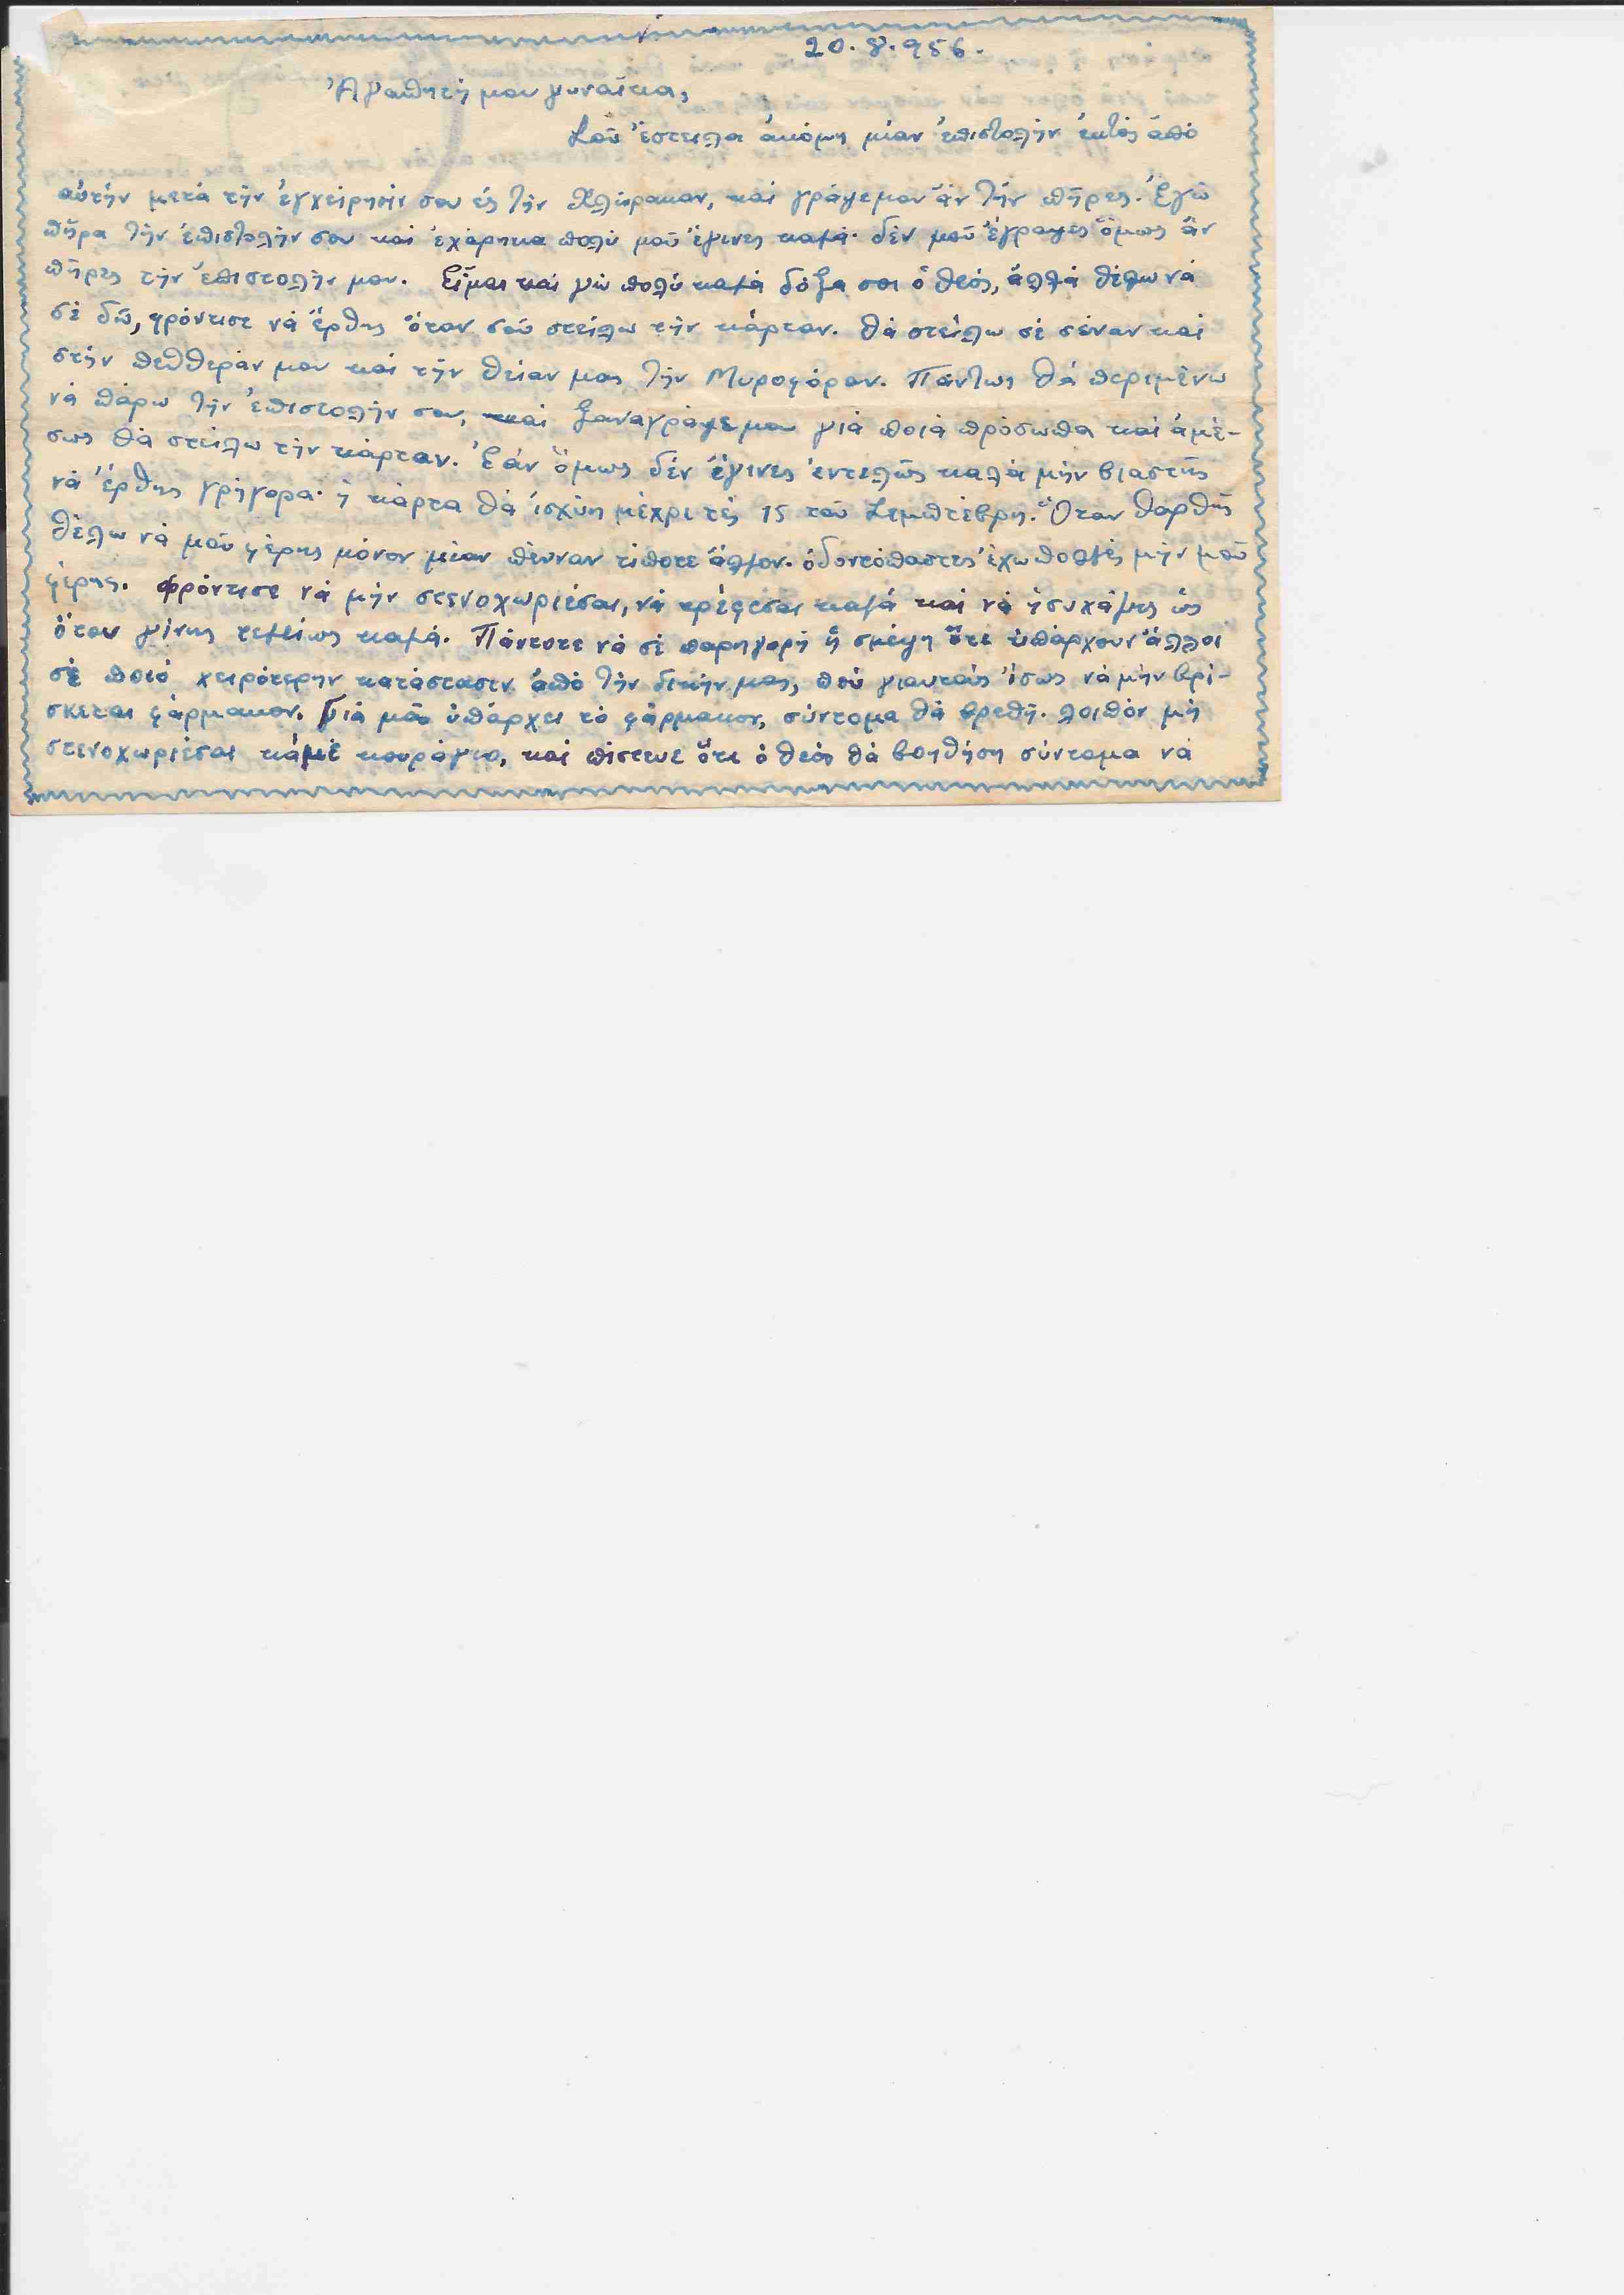 20.8.956.
Ἀγαπητή μου γυναῖκα,
Σοῦ ἔστειλα ἀκόμη μίαν ἐπιστολήν ἐκτός ἀπό
αὐτήν μετά τήν ἐγχείρησίν σου ἐς τήν Χλώρακαν, καί γράψεμου ἄν τήν πῆρες. Ἐγώ
πῆρα τήν ἐπιστολήν σου καί ἐχάρηκα πολύ πού ἔγινες καλά. δέν μοῦ ἔγραψες ὅμως ἄν
πῆρες τήν ἐπιστολήν μου. Εἶμαι καί γώ πολύ καλά δόξα σοι ὁ θεός, ἀλλά θέλω νά
σέ δῶ, φρόντισε νά ἔρθης ὅταν σοῦ στείλω τήν κάρταν. θά στείλω σέ σέναν καί
στήν πεθθεράν μου καί τήν θείαν μας τήν Μυροφόραν. Πάντως θά περιμένω
νά πάρω τήν ἐπιστολήν σου, καί ξαναγράψεμου γιά ποιά πρόσωπα καί ἀμέ-
σως θά στείλω τήν κάρταν. Ἐάν ὅμως δέν ἔγινες ἐντελῶς καλά μήν βιαστῆς
νά ἔρθης γρήγορα. ἡ κάρτα θά ἰσχύη μέχρι τές 15 τοῦ Σεμπτέβρη. Ὅταν θαρθῆς
θέλω νά μοῦ φέρης μόνον μίαν πένναν τίποτε ἄλλον. ὀδοντόπαστες ἔχω πολλές μήν μοῦ
φέρης. φρόντισε νά μήν στενοχωριέσαι, νά τρέφεσαι καλά καί νά ἡσυχάζης ὡς
ὅταν γίνης τελείως καλά. Πάντοτε νά σέ παρηγορῆ ἡ σκέψη ὅτι ὑπάρχουν ἄλλοι
σέ ποιό χειρότερην κατάστασιν ἀπό τήν δικήν μας, πού γιαυτούς ἴσως νά μήν βρί-
σκεται φάρμακον. Γιά μᾶς ὑπάρχει τό φάρμακον, σύντομα θά βρεθῆ. λοιπόν μή
στενοχωριέσαι κάμε κουράγιο, καί πίστευε ὅτι ὁ θεός θά βοηθήση σύντομα νά